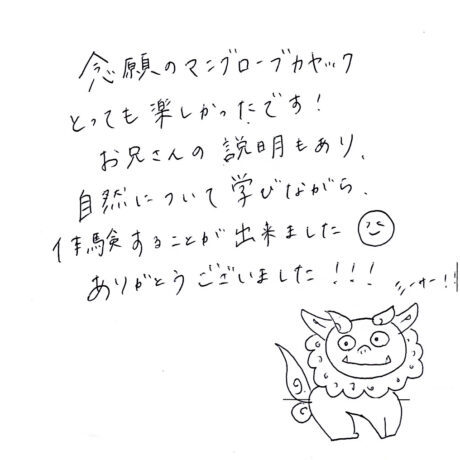 念願のマングローブカヤック
とっても楽しかったです!
お兄さんの説明もあり、
自然について学びながら、
体験することが出来ました
ありがとうございました!!!
シーサー!!